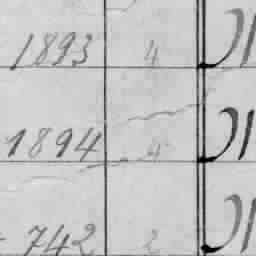 1893 4
1894 4
742 2